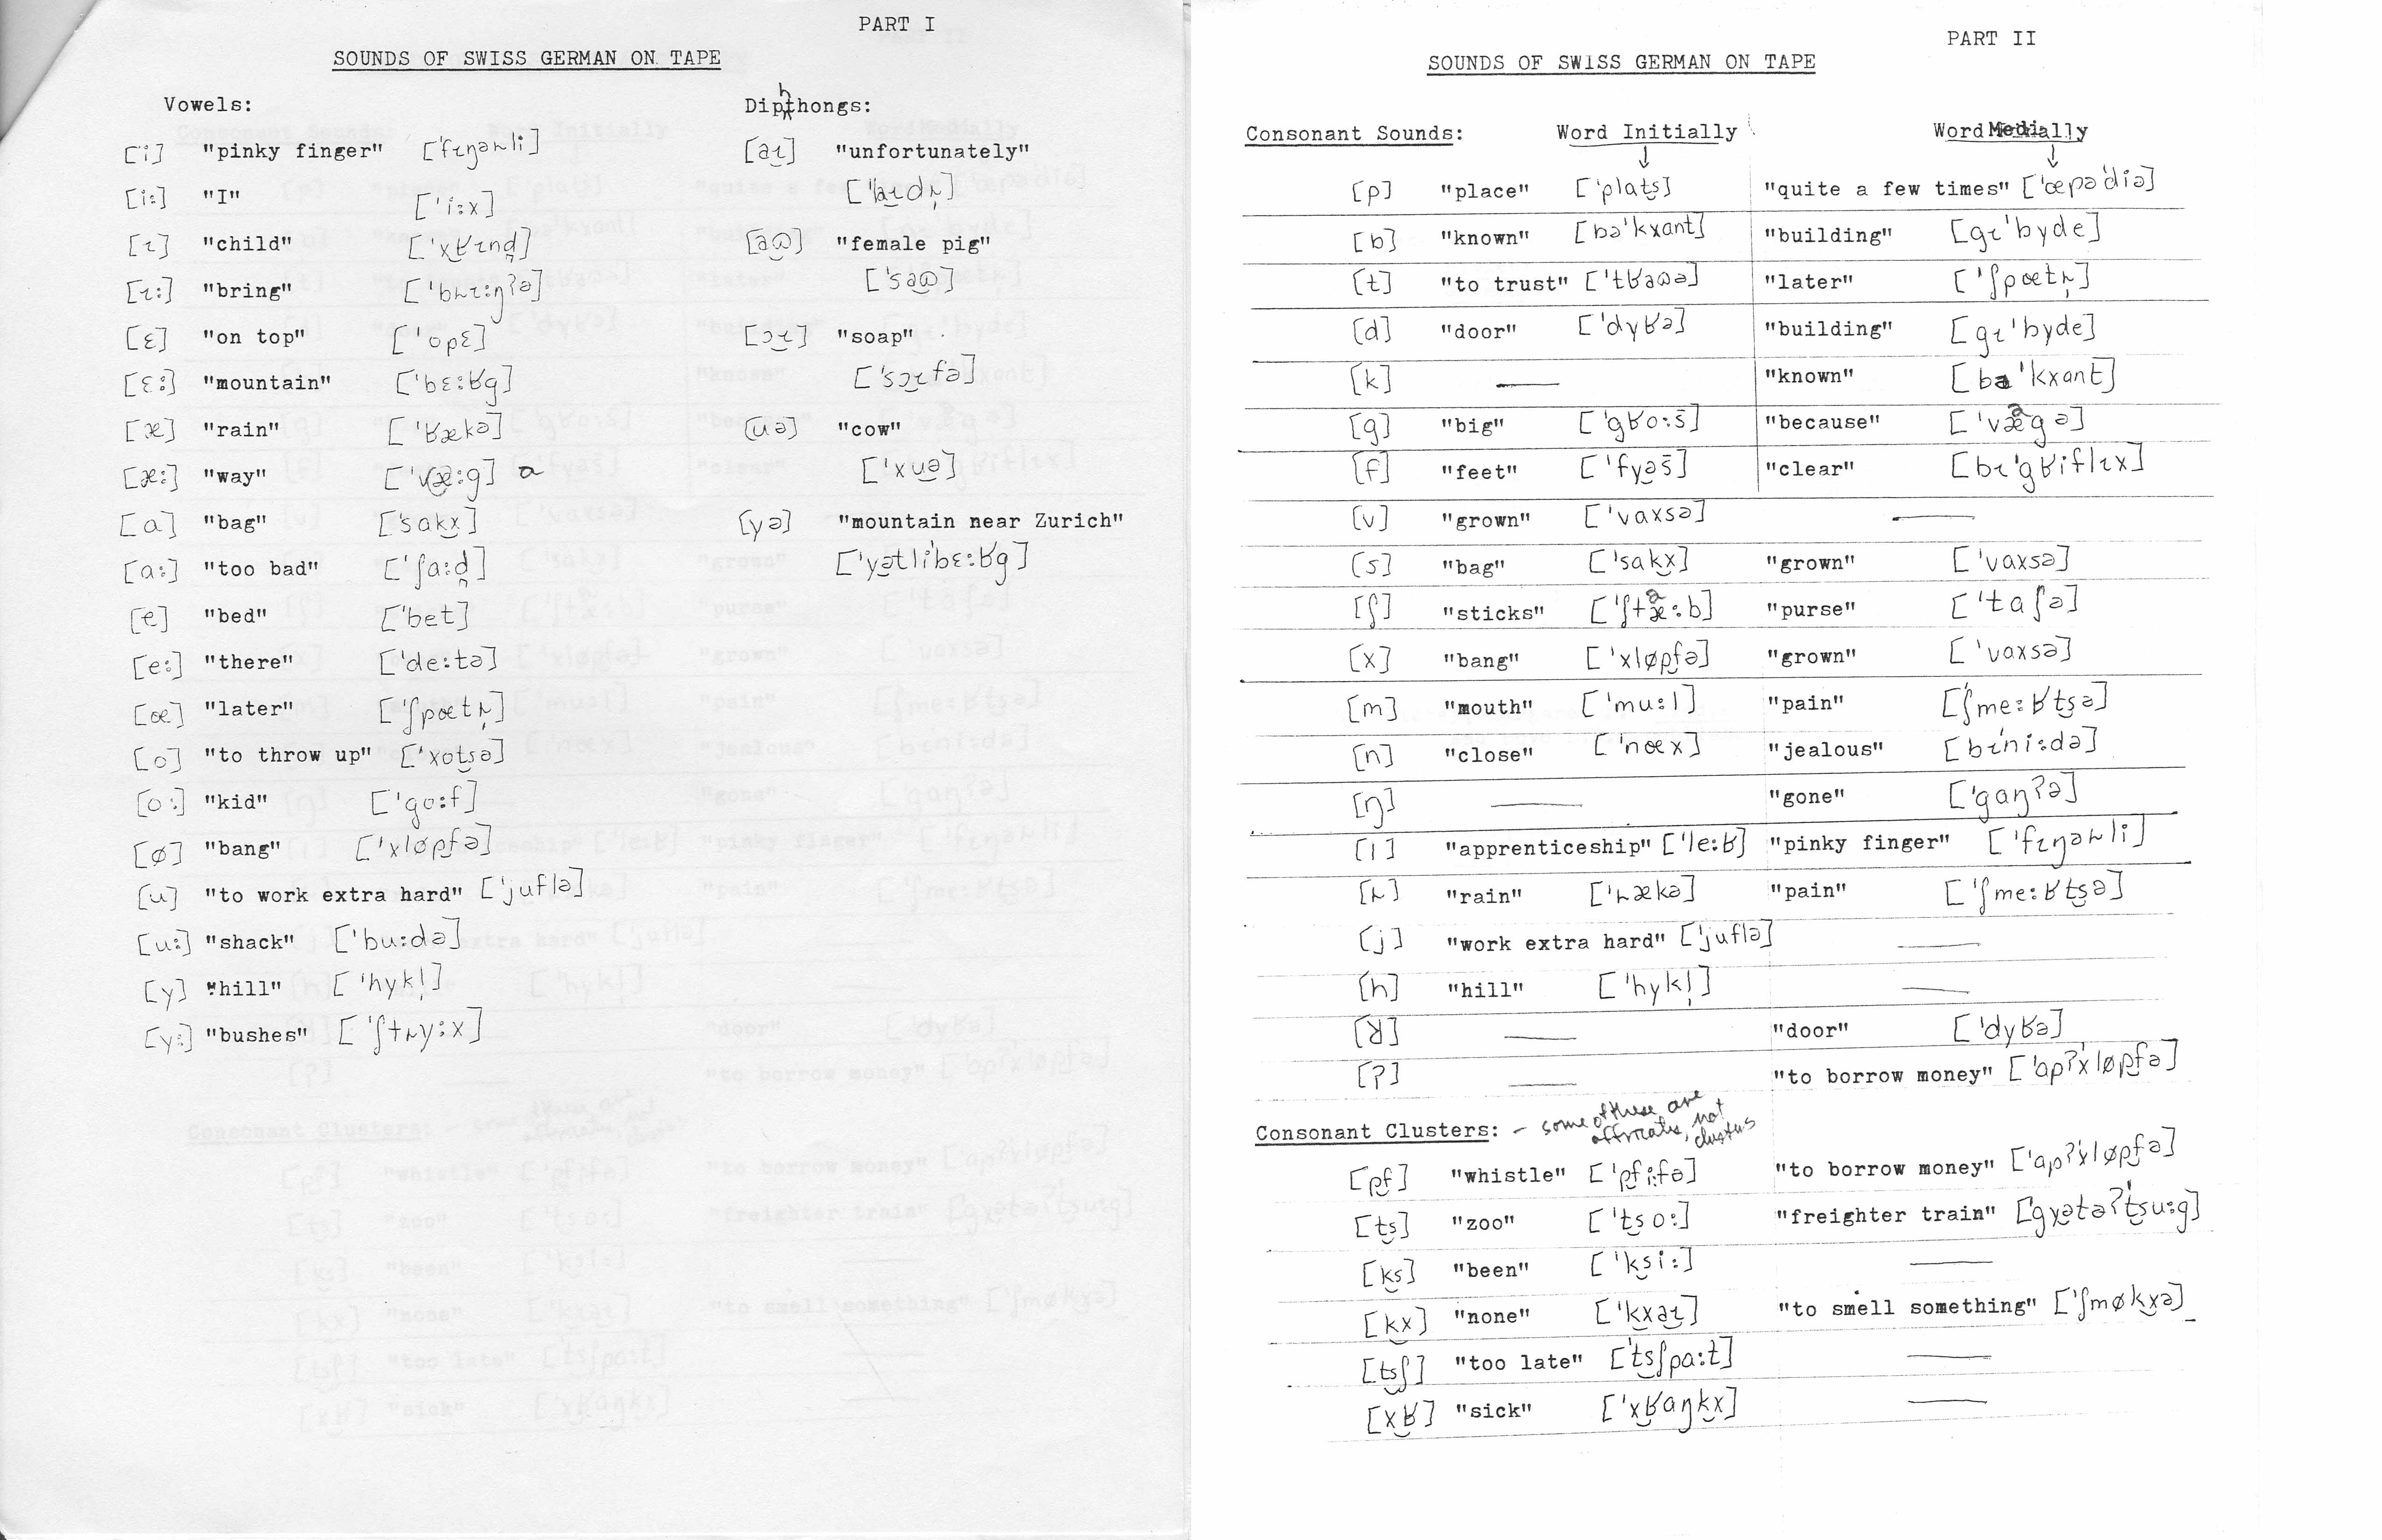 PART I
SOUNDS OF SWISS GERMAN ON TAPE
Vowels:
[i] "pinky finger" ['fɪŋəɹli]
[i:] "I" ['i:x]
[ɪ] "child" ['xʁɪnd̥]
[ɪ:] "bring" ['bɹɪ:ŋʔə]
[ɛ] "on top" ['opɛ]
[ɛ:] "mountain" ['bɛ:ʁg]
[æ] "rain" ['ʁækə]
[æ:] "way" ['væ:g] a
[a] "bag" ['sakx]
[a:] "too bad" ['ʃa:d̥]
[e] "bed" ['bet]
[e:] "there" ['de:tə]
[œ] "later" ['ʃpœtɹ̩]
[o] "to throw up" ['xot͜sə]
[o:] "kid" ['go:f]
[ø] "bang" ['xløp͜fə]
[u] "to work extra hard" ['juflə]
[u:] "shack" ['bu:də]
[y] "hill" ['hykl̩]
[y:] "bushes" ['ʃtɹy:x]
Diphthongs:
[a͜ɪ] "unfortunately"
['la͜ɪdɹ̩]
[a͜ɷ] "female pig"
['sa͜ɷ]
[ɔ͜ɪ] "soap"
['sɔ͜ɪfə]
[u͜ə] "cow"
['xu͜ə]
[y͜ə] "mountain near Zurich"
['y͜ətlibɛ:ʁg]
PART II
SOUNDS OF SWISS GERMAN ON TAPE
Consonant Sounds: Word Initially Word Medially
[p] "place" ['plat͜s] "quite a few times" ['œpə'diə]
[b] "known" [bə'kxant] "building" [gɪ'byde]
[t] "to trust" ['tʁaɷə] "later" ['ʃpœtɹ̩]
[d] "door" ['dyʁə] "building" [gɪ'byde]
[k] — "known" [bə'kxant]
[g] "big" ['gʁo:s̄] "because" ['vægə] a
[f] "feet" ['fy͜əs̄] "clear" [bɪ'gʁiflɪx]
[v] "grown" ['vaxsə] —
[s] "bag" ['sak͜x] "grown" ['vaxsə]
[ʃ] "sticks" ['ʃtæ:b] a "purse" ['taʃə]
[x] "bang" ['xløp͜fə] "grown" ['vaxsə]
[m] "mouth" ['mu:l] "pain" ['ʃme:ʁt͜sə]
[n] "close" ['nœx] "jealous" [bɪ'ni:də]
[ŋ] — "gone" ['gaŋʔə]
[l] "apprenticeship" ['le:ʁ] "pinky finger" ['fɪŋəɹli]
[ɹ] "rain" ['ɹækə] "pain" ['ʃme:ʁt͜sə]
[j] "work extra hard" ['juflə] —
[h] "hill" ['hykl̩] —
[ʁ] — "door" ['dyʁə]
[ʔ] — "to borrow money" ['apʔ'xløp͜fə]
Consonant Clusters: – some of these are affricates, not clusters
[p͜f] "whistle" ['p͜fi:fə] "to borrow money" ['apʔ'xløp͜fə]
[t͜s] "zoo" ['t͜so:] "freighter train" ['gy͜ətəʔ't͜su:g]
[k͜s] "been" ['k͜si:] —
[k͜x] "none" ['k͜xa͜ɪ] "to smell something" ['ʃmøk͜xə]
[t͜sʃ] "too late" ['t͜sʃpa:t] —
[x͜ʁ] "sick" ['x͜ʁaŋk͜x] —